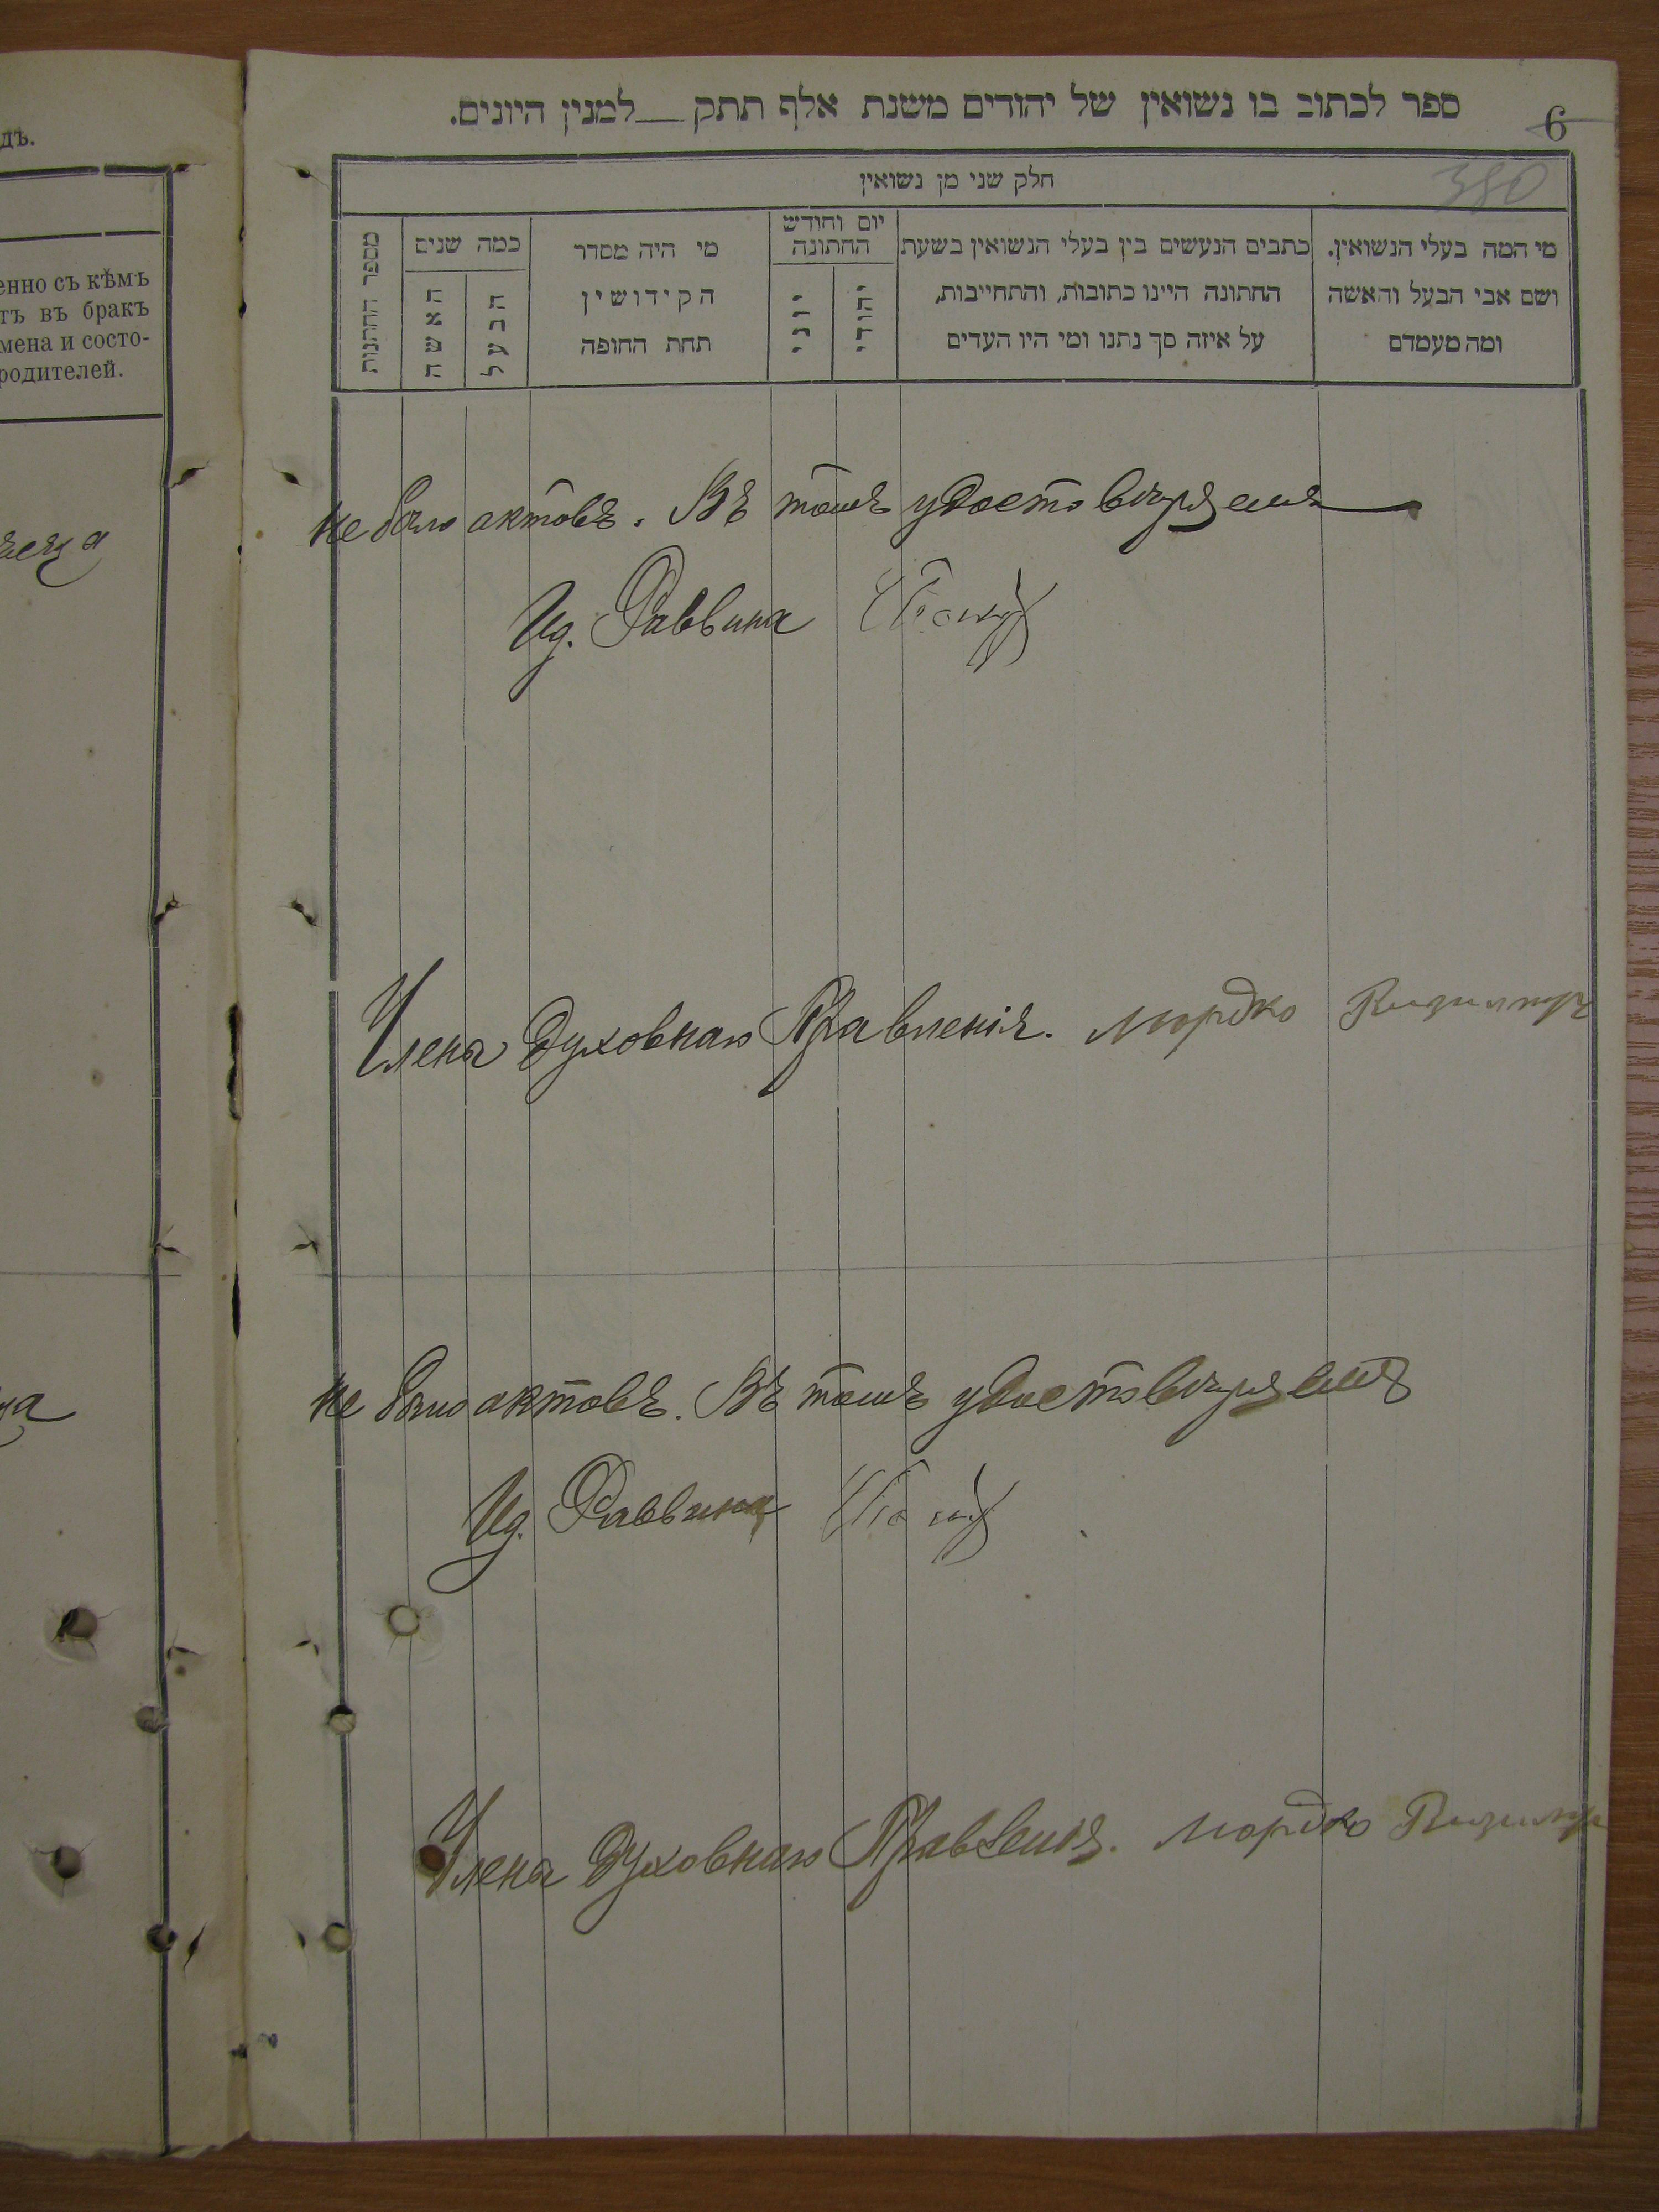 дъ.
енно съ кѣмъ
тъ въ бракъ
мена и состо-
родителей.
ספר לכתוב בו נשואין של יהודים משנת אלף תתק__למנין היונים.
6
380
חלק שני מן נשואין
מי המה בעלי הנשואין.
ושם אבי הבעל והאשה
ומה מעמדם
כתבים הנעשים בין בעלי הנשואין בשעת
החתונה היינו כתובות, והתחייבות,
על איזה סך נתנו ומי היו העדים
יום וחודש
החתונה
יהודי
יוני
מי היה מסדר
הקידושין
תחת החופה
כמה שנים
הבעל
האשה
מספר החתונות
не было актовъ. Въ томъ удостовѣряемъ
Ид. Раввина
Члена Духовнаго Правленія. Мордко
не было актовъ. Въ томъ удостовѣряемъ
Ид. Раввина
Члена Духовнаго Правленія. Мордко